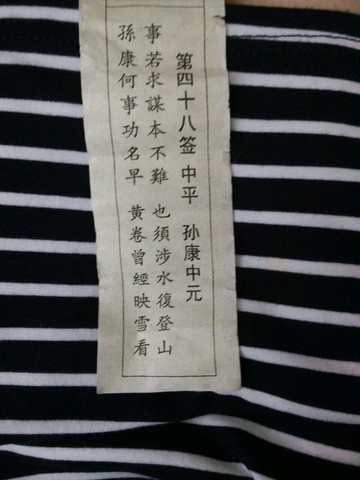 第四十八签 中平 孙康中元
事若求謀本不難 也須涉水復登山
孫康何事功名早 黄卷曾經映雪看